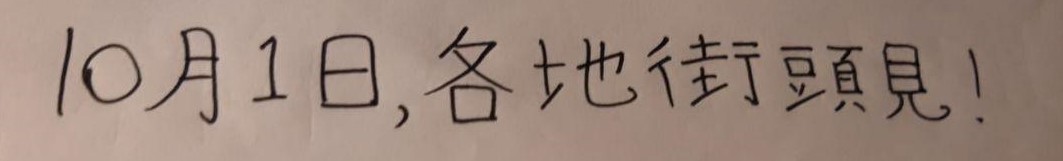 10月1日,各地街頭見!